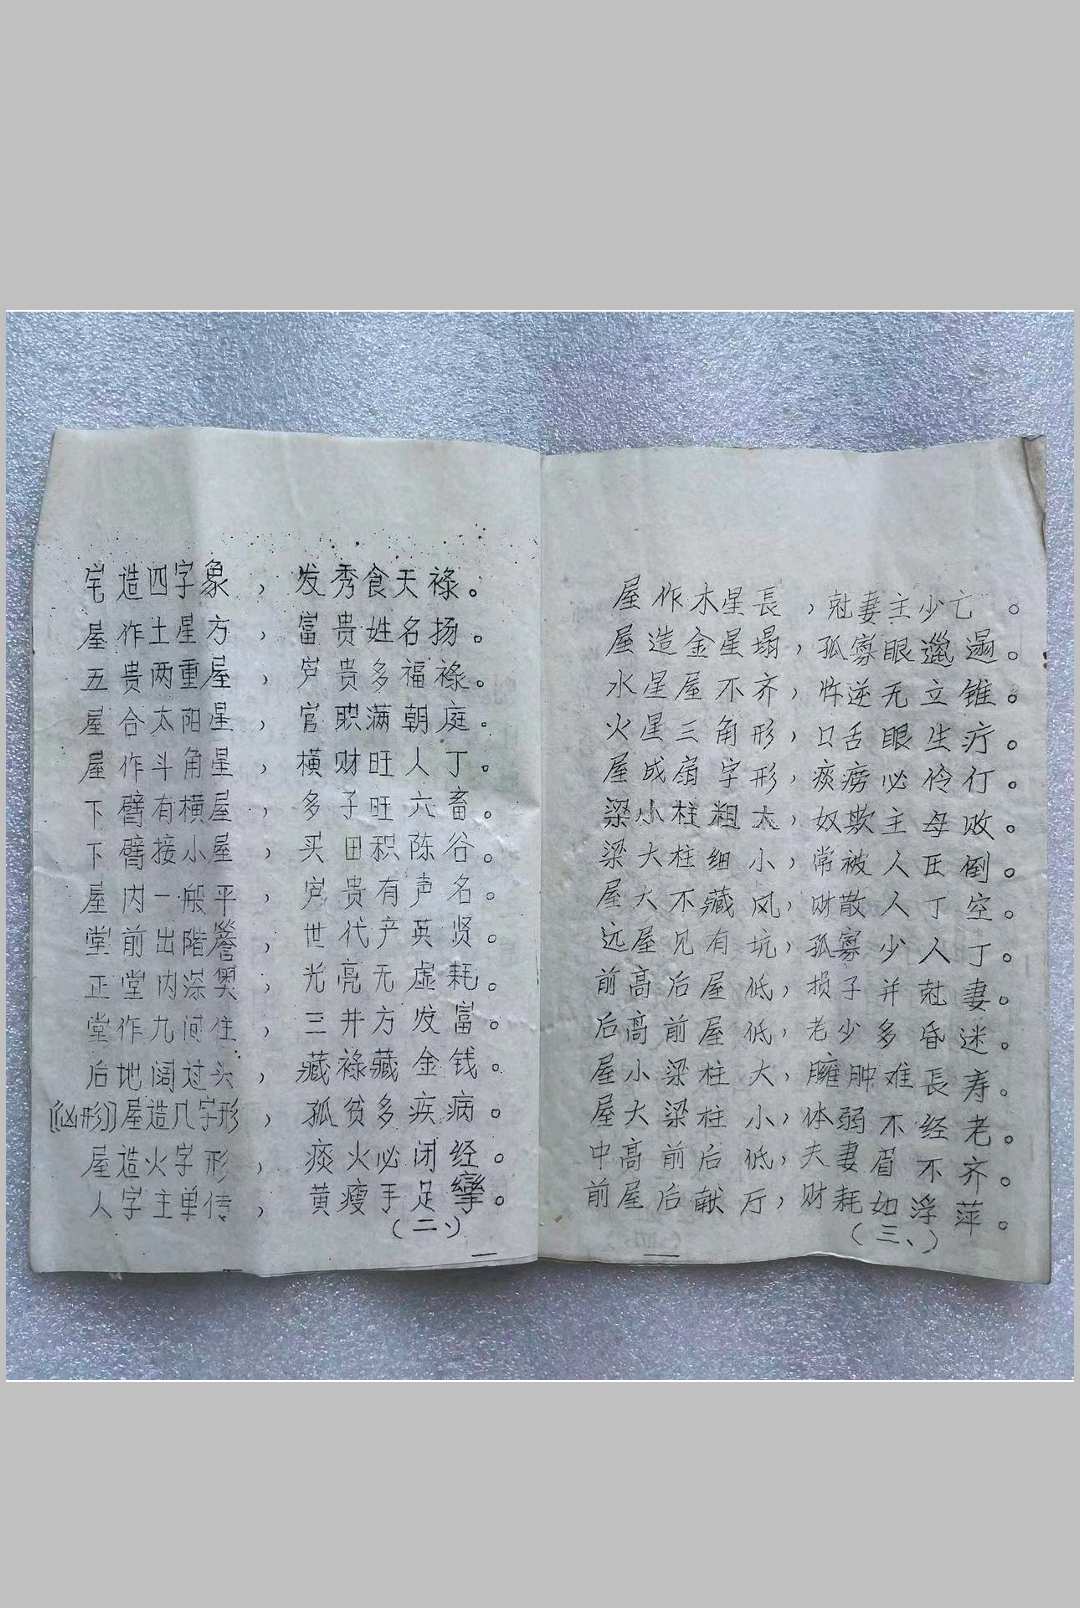 宅造四字象，发秀食天禄。
屋作土星方，富贵姓名扬。
五贵两重屋，岁贵多福禄。
屋合太阳星，官职满朝庭。
屋作斗角星，横财旺人丁。
下臂有横屋，多子旺六畜。
下臂接小屋，买田积陈谷。
屋内一般平，贵有声名。
堂前出階簷，世代产英贤。
正堂内深奥，光亮无虚耗。
堂作九间住，三井方发富。
后地阔过头，藏禄藏金钱。
(凶形)屋造几字形，孤贫多疾病。
屋造火字形，痰火必闭经。
人字主单传，黄瘦手足孪。
(二、)
屋作木星長，尅妻主少亡。
屋造金星塌，孤寡眼邋遢。
水星屋不齐，忤逆无立锥。
火星三角形，口舌眼生疔。
屋成扇字形，痰痨必伶仃。
梁小柱粗大，奴欺主母败。
梁大柱细小，常被人压倒。
屋大不藏风，财散人丁空。
远屋见有坑，孤寡少人丁。
前高后屋低，损子并尅妻。
后高前屋低，老少多昏迷。
屋小梁柱大，臃肿难長寿。
屋大梁柱小，体弱不经老。
中高前后低，夫妻眉不齐。
前屋后献厅，财耗如浮萍。
(三、)